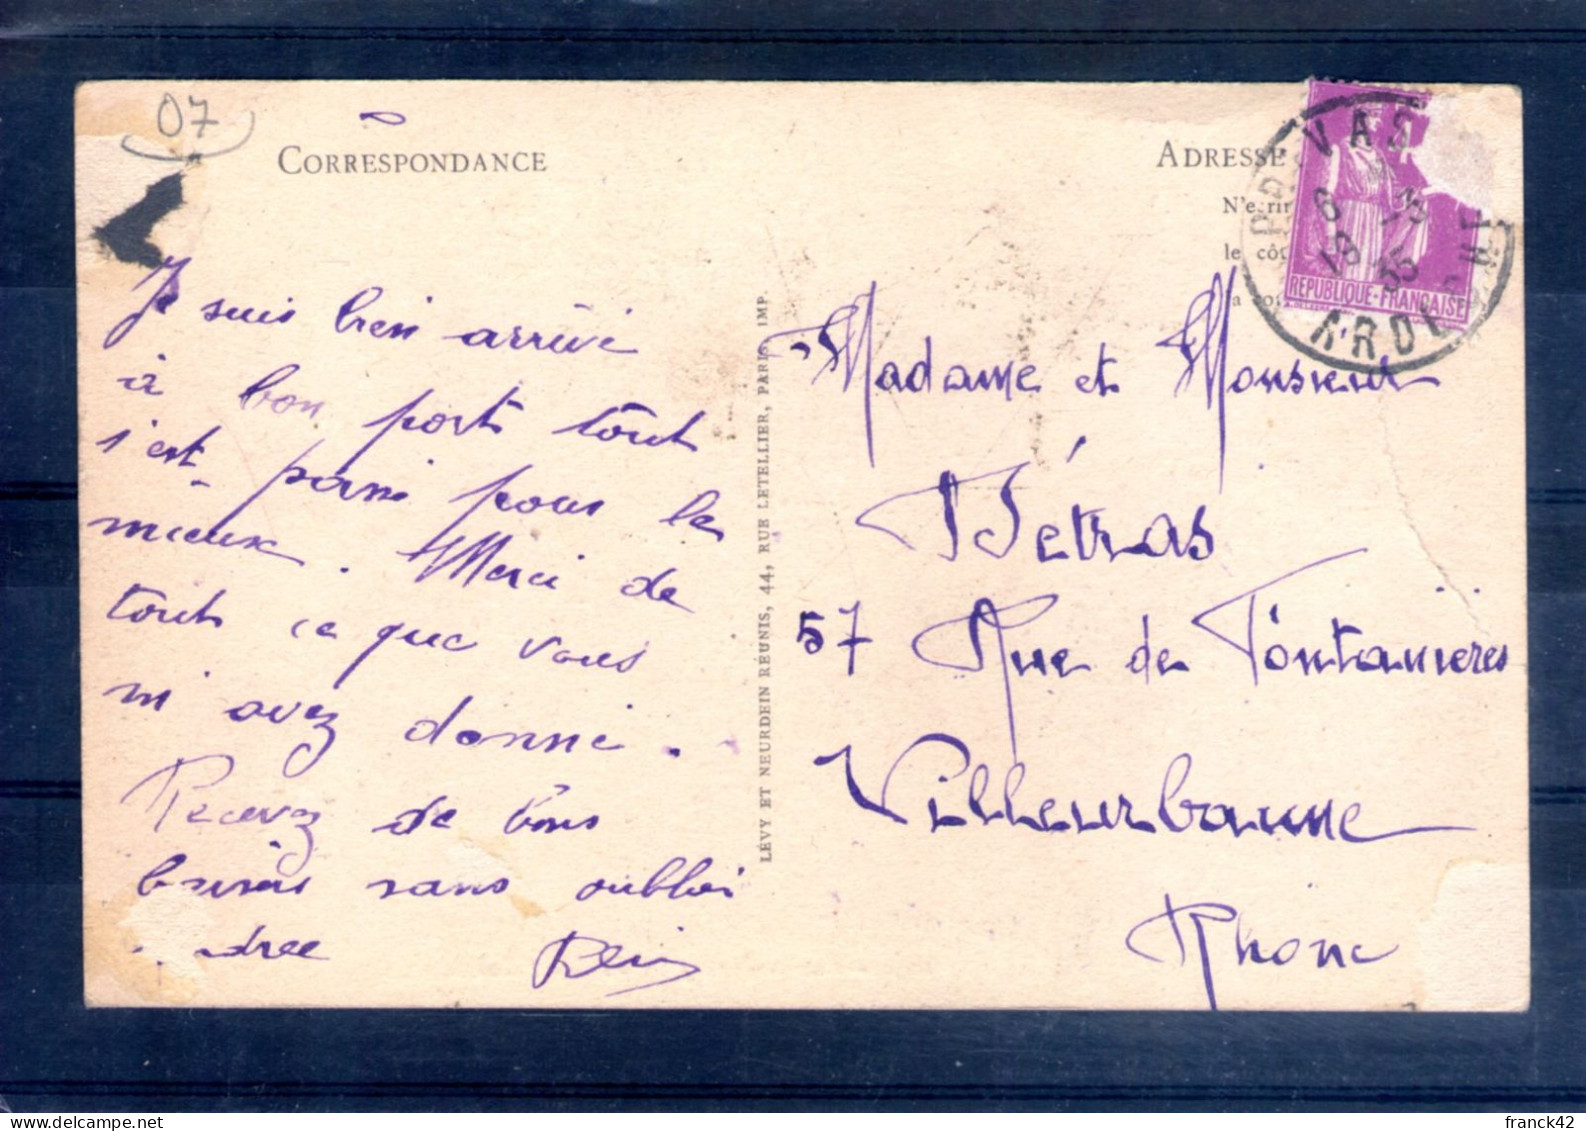 07
CORRESPONDANCE
Je suis bien arrivé
à bon port tout
s'est passé pour le
mieux. Merci de
tout ce que vous
m'avez donné.
Recevez de bons
baisers sans oublier
drée
ADRESSE
le côt
LÉVY ET NEURDEIN RÉUNIS, 44, RUE LETELLIER, PARIS, IMP.
PRIVAS
6 -5
19 35
ARDECHE
REPUBLIQUE-FRANÇAISE
Madame et Monsieur
Tétras
57 Rue de Fontanières
Villeurbanne
Rhône
franck42